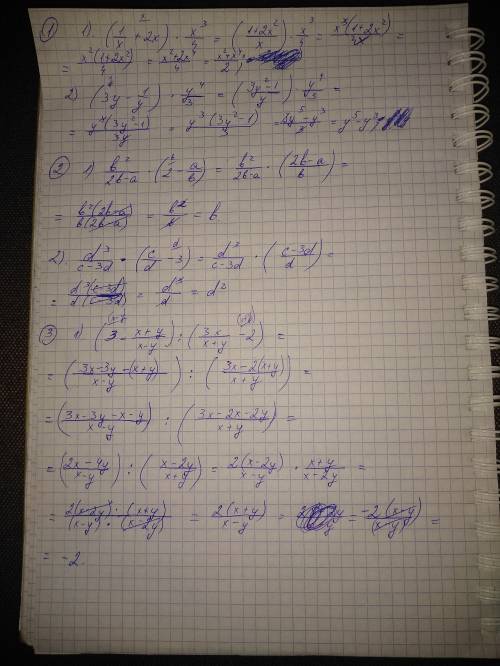 ① 1). (1/x + 2x) · x³/4 = ((1+2x²)/x) · x³/4 = x³(1+2x²)/4x =
= x²(1+2x²)/4 = (x²+2x⁴)/4 = (x²+x⁴)/2
2) (3y - 1/y) · y⁴/3 = ((3y²-1)/y) · y⁴/3 =
= y⁴(3y²-1)/3y = y³(3y²-1)/3 = = y⁵-y³
② 1) b²/(2b-a) · (2 - a/b) = b²/(2b-a) · ((2b-a)/b) =
= b²(2b-a)/b(2b-a) = b²/b = b
2). d³/(c-3d) · (c/d - 3) = d³/(c-3d) · ((c-3d)/d) =
= d³(c-3d)/d(c-3d) = d³/d = d²
③ 1) (3 - (x+y)/(x-y)) : (3x/(x+y) - 2) =
= ((3x-3y-(x+y))/(x-y)) : ((3x-2(x+y))/(x+y)) =
= ((3x-3y-x-y)/(x-y)) : ((3x-2x-2y)/(x+y)) =
= ((2x-4y)/(x-y)) : ((x-2y)/(x+y)) = 2(x-2y)/(x-y) · (x+y)/(x-2y) =
= 2(x-2y)·(x+y)/(x-y)·(x-2y) = 2(x+y)/(x-y) = = -2(x-y)/(x-y) =
= -2.